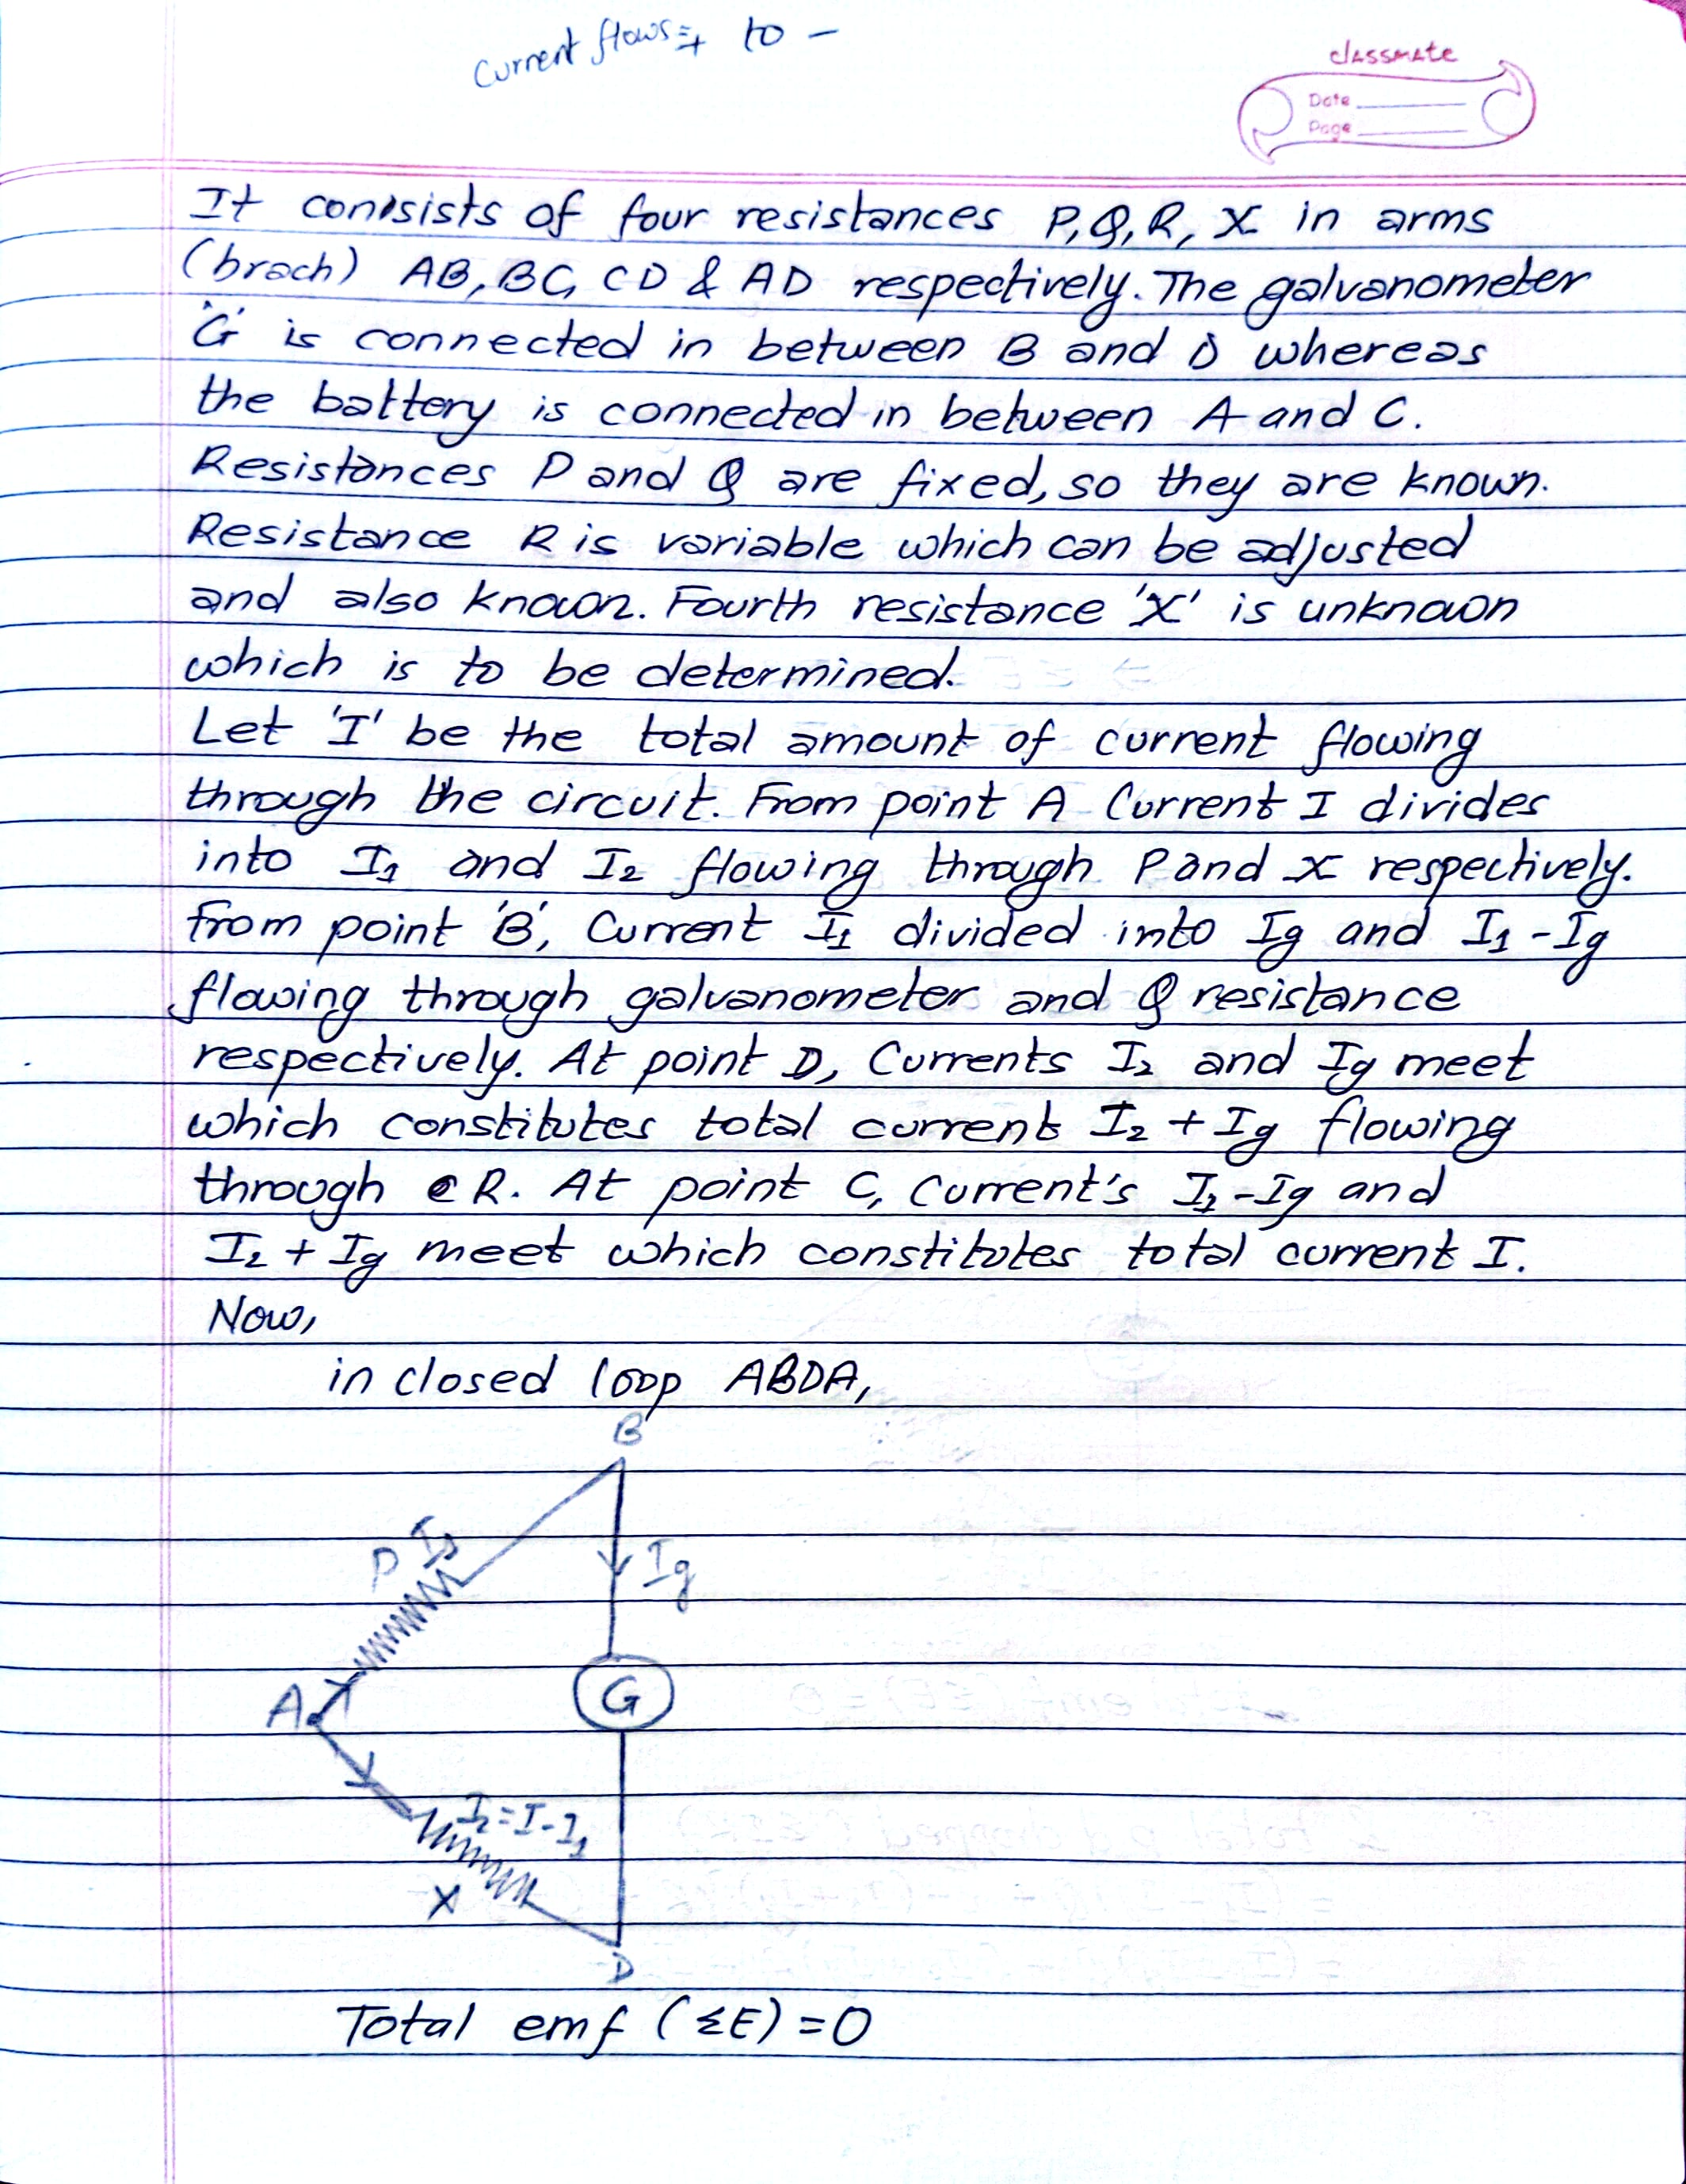 Current flows = + to -
classmate
Date
Page
It conisists of four resistances P, Q, R, X in arms
(brach) AB, BC, CD & AD respectively. The galvanometer
'G' is connected in between B and D whereas
the battery is connected in between A and C.
Resistances P and Q are fixed, so they are known.
Resistance R is variable which can be adjusted
and also known. Fourth resistance 'X' is unknown
which is to be determined.
Let 'I' be the total amount of current flowing
through the circuit. From point A Current I divides
into I₁ and I₂ flowing through P and X respectively.
From point 'B', Current I₁ divided into Ig and I₁-Ig
flowing through galvanometer and Q resistance
respectively. At point D, Currents I₂ and Ig meet
which constitutes total current I₂ + Ig flowing
through R. At point C, Current's I₁-Ig and
I₂ + Ig meet which constitutes total current I.
Now,
in closed loop ABDA,
B
P I₁
Ig
G
A
I₂=I-I₁
X
D
Total emf (ΣE) = 0